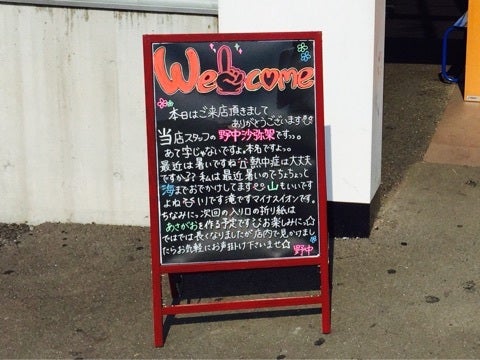 Welcome
本日はご来店頂きまして
ありがとうございます
当店スタッフの野中沙弥架です。
あて字じゃないですよ。本名ですよ。
最近は暑いですね 熱中症は大丈夫
ですか?? 私は最近暑いのでちょちょっと
海までおでかけしてます 山もいいです
よね そういりです滝ですマイナスイオンです。
ちなみに。次回の入り口の折り紙は
あさがおを作る予定です お楽しみにっ☆
ではでは長くなりましたが店内で見かけまし
たらお気軽にお声掛け下さいませ☆
野中